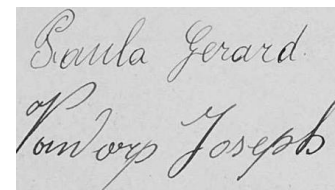 Paula Gerard.
Vandorp Joseph